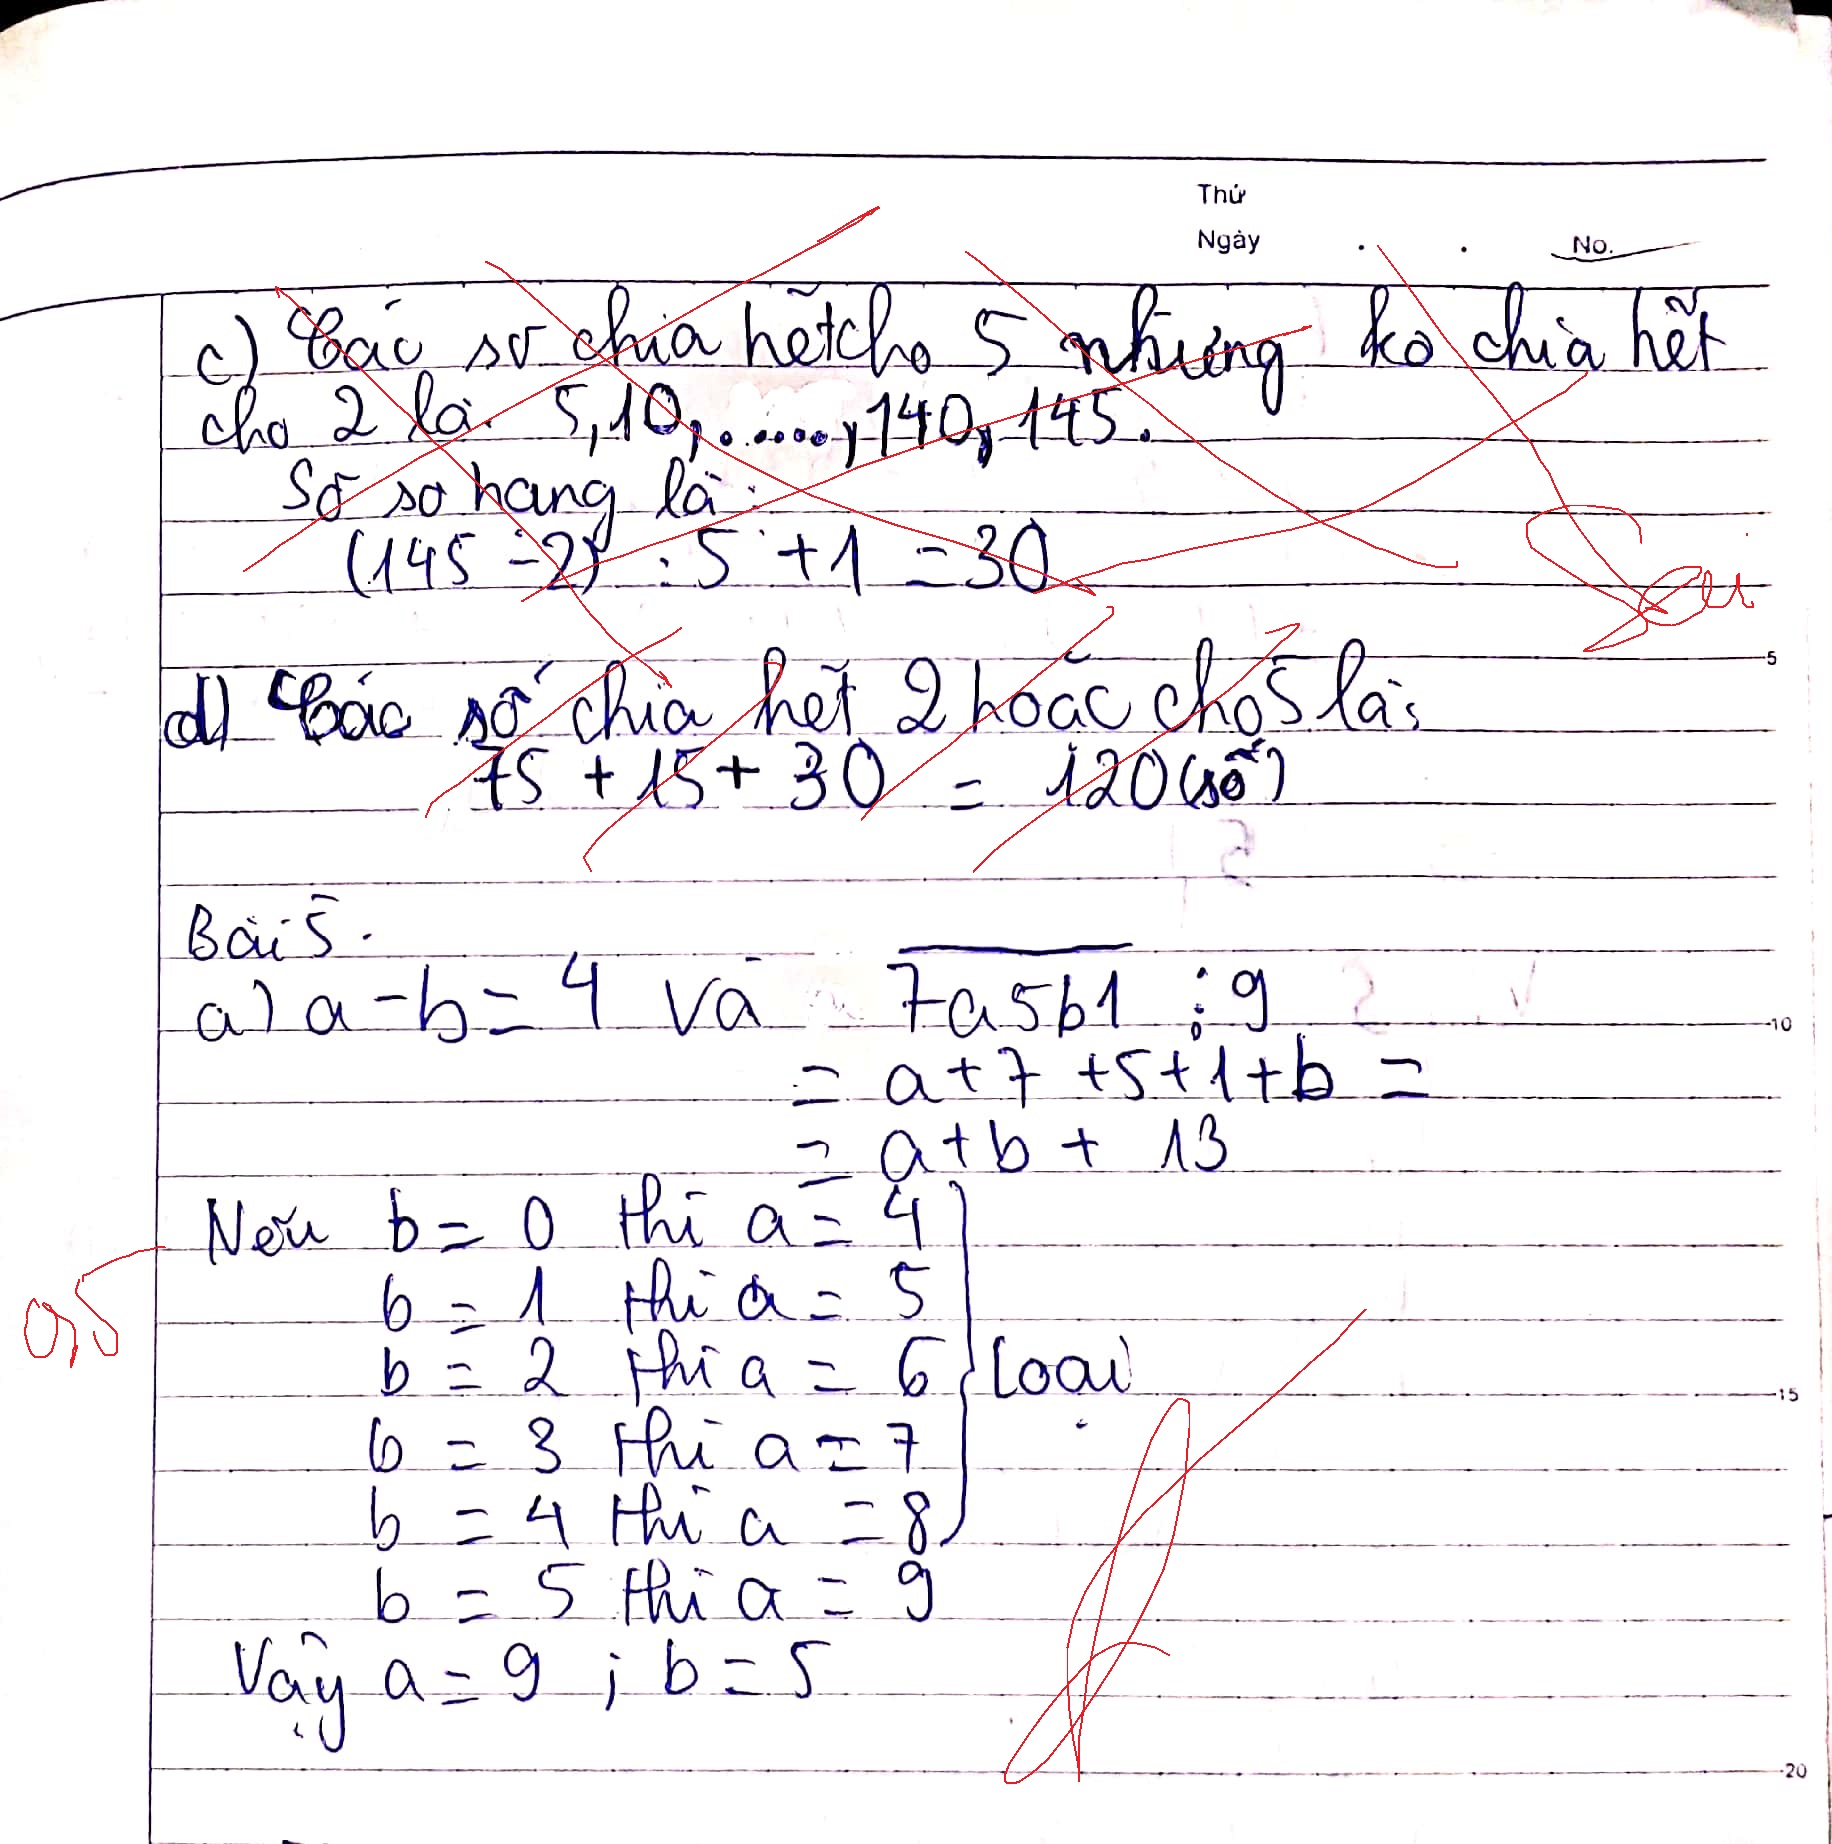 Thứ
Ngày . . No.
c) Các số chia hết cho 5 nhưng ko chia hết
cho 2 là: 5,10,......,140,145.
Số số hạng là:
(145-2) : 5 +1 = 30
Sai
d) Các số chia hết 2 hoặc cho 5 là:
75 + 15 + 30 = 120 (số)
5
Bài 5.
a) a-b = 4 và 7a5b1 ⋮ 9
10
= a+7 +5+1+b =
= a+b + 13
Nếu b = 0 thì a = 4
0,5
b = 1 thì a = 5
b = 2 thì a = 6 loại
15
b = 3 thì a = 7
b = 4 thì a = 8
b = 5 thì a = 9
Vậy a = 9 ; b = 5
20